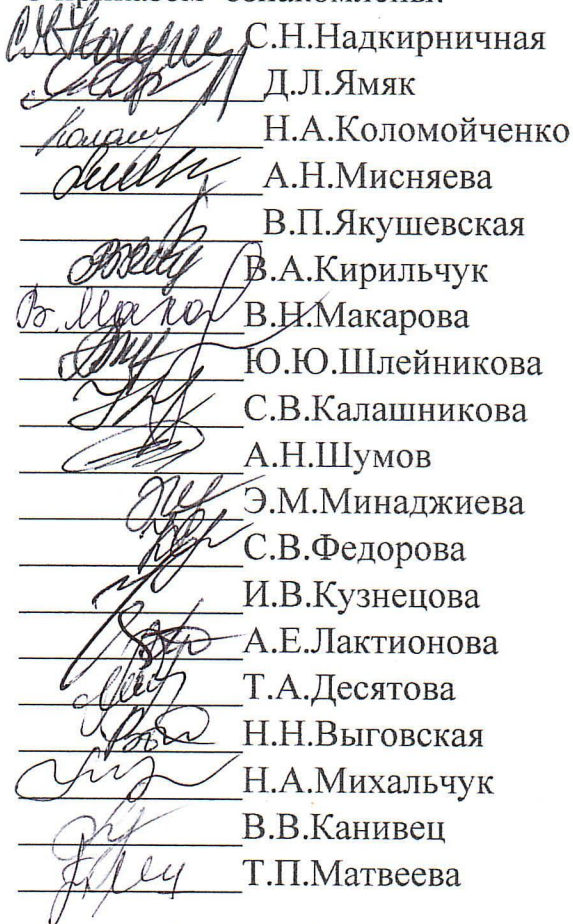 С приказом ознакомлены:
С.Н.Надкирничная
Д.Л.Ямяк
Н.А.Коломойченко
А.Н.Мисняева
В.П.Якушевская
В.А.Кирильчук
В.Мака В.Н.Макарова
Ю.Ю.Шлейникова
С.В.Калашникова
А.Н.Шумов
Э.М.Минаджиева
С.В.Федорова
И.В.Кузнецова
А.Е.Лактионова
Т.А.Десятова
Н.Н.Выговская
Н.А.Михальчук
В.В.Канивец
Т.П.Матвеева